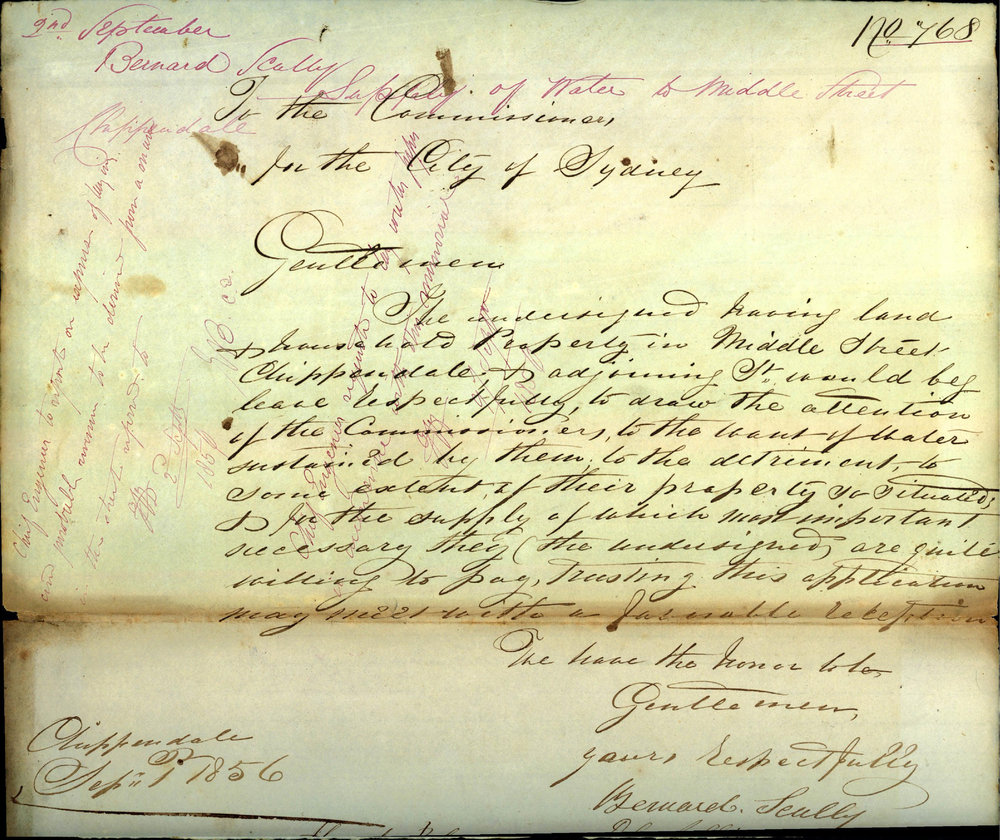 2nd September
Bernard Scully
Supply of Water to Middle Street
Chippendale
No 768
To the Commissioners
for the City of Sydney
Gentlemen
The undersigned having land
& household Property in Middle Street
Chippendale & adjoining St. would beg
leave respectfully, to draw the attention
of the Commissioners, to the want of Water
sustained by them, to the detriment, to
some extent, of their property so situated,
& for the supply of which most important
necessary they (the undersigned) are quite
willing to pay, trusting this application
may meet with a favorable reception
We have the honor to be,
Gentlemen,
yours respectfully
Bernard Scully
Chippendale
Sepr. 1st 1856
Chief Engineer to report on expense of laying
and probable revenue to be derived from a main
in the street referred to
2d Septr
1856
Chief Engineer requested to lay water pipes
in accordance with this memorial